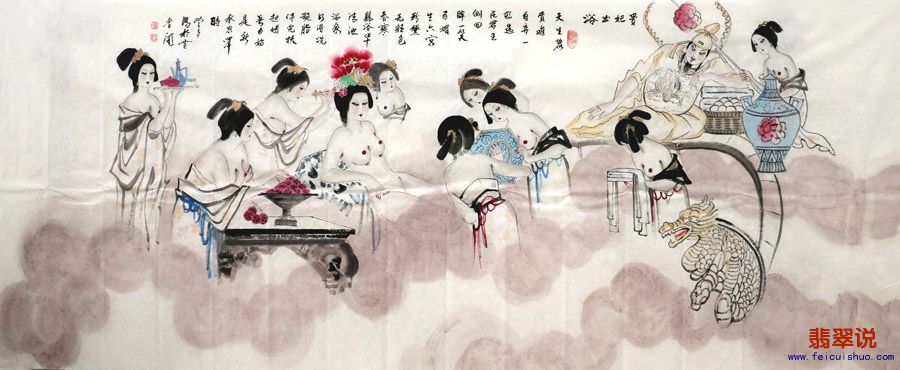 貴妃出浴
天生麗
質難
自弃一
朝選
在君王
側回
眸一笑
百媚
生六宮
粉黛
无顏色
春寒
賜浴華
清池
温泉
水滑洗
凝脂
侍兒扶
起嬌
無力始
是新
承恩澤
時
翡翠说
www.feicuishuo.com